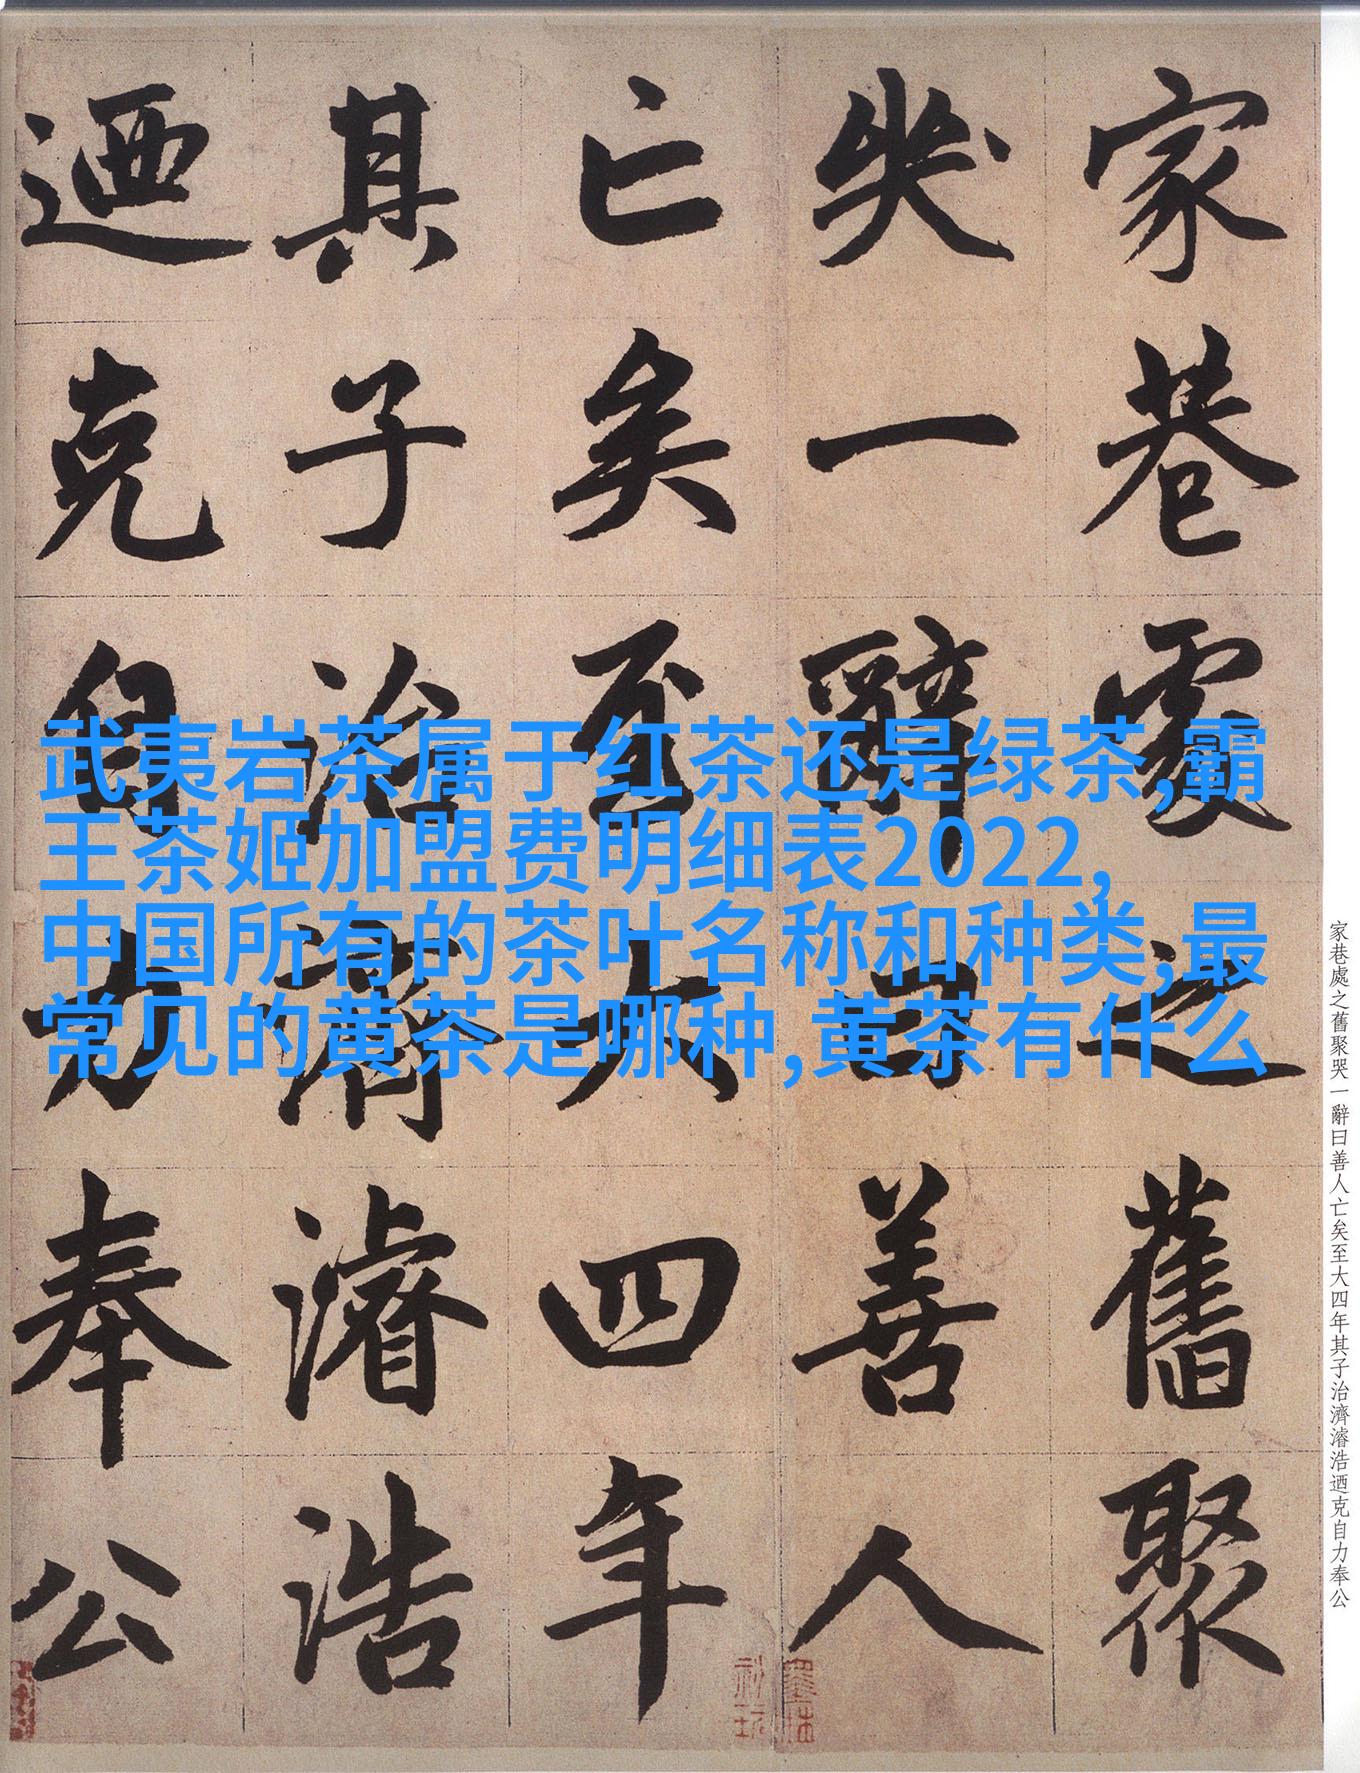 家巷處之舊聚
哭一辭曰善人
亡矣至大四年
其子治濟濬浩
迺克自力奉公
武夷岩茶属于红茶还是绿茶,霸
王茶姬加盟费明细表2022,
中国所有的茶叶名称和种类,最
常见的黄茶是哪种,黄茶有什么
家巷處之舊聚哭一辭曰善人亡矣至大四年其子治濟濬浩迺克自力奉公